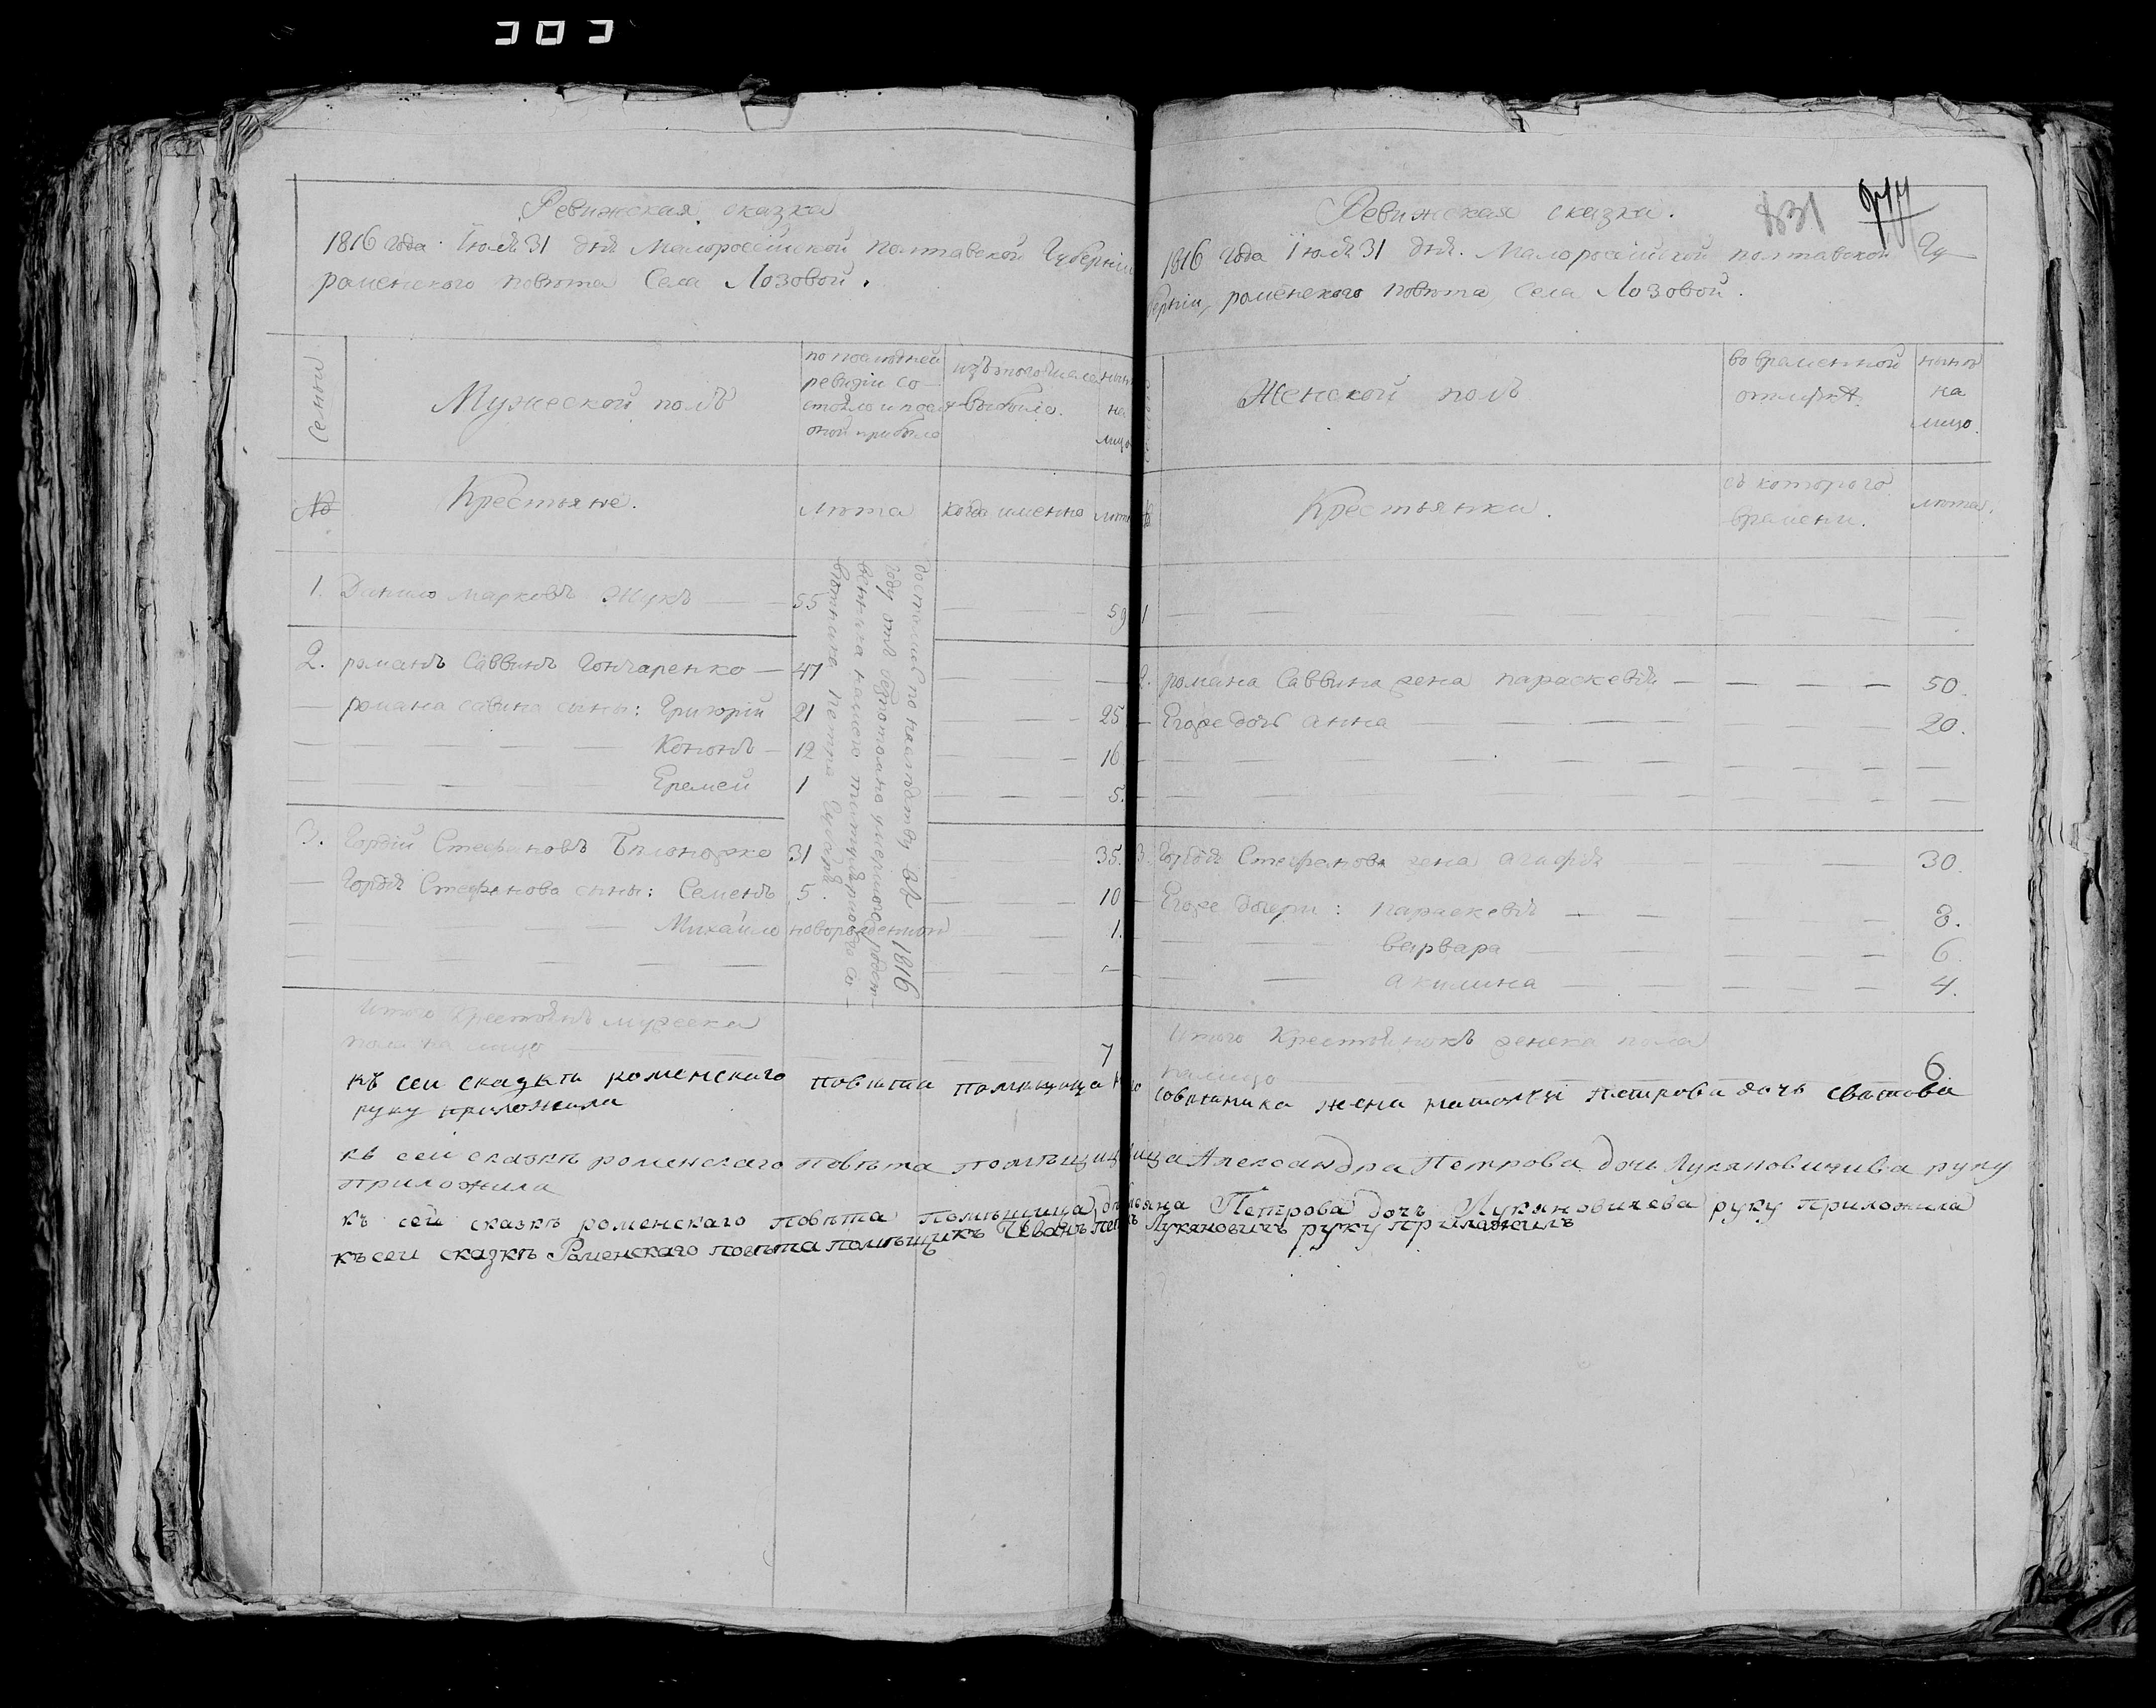 Ревижская сказка
1816 года Іюля 31 дня Малороссійской полтавской Губерніи
роменского повѣта Села Лозовой.
Семьи
Мужеской полъ
по последней
ревизіи со-
стояло и после
оной прибыло
изъ того числа
выбыло.
нынѣ
на
лицо
№
Крестьяне.
лѣта
когда именно
лѣта
1. Данило Марковъ Жукъ — 55 — 59
2. романъ Саввинъ Гончаренко — 47 —
— романа савина сыны: Григорій 21 — 25
Кононъ — 12 — 16
Еремей 1 — 5.
3. Гордій Стефановъ 31 35.
— Гордія Стефанова сыны: Семенъ 5. — 10
Михайло новорожденной — 1.
достались по наследству въ 1816
году отъ
Петра
Итого крестьянъ мужеска
пола на лицо — 7
Ревижская сказка.
831
1816 года Іюля 31 дня. Малороссійской полтавской Гу-
берніи, роменского повѣта, села Лозовой.
Женской полъ
во временной
отлучкѣ
нынѣ
на
лицо.
№
Крестьянки.
съ которого
времени.
лѣта.
1 —
2. романа Саввина жена параскевія — 50.
— Егоже дочь анна — 20.
3. Гордія Стефанова жена агафія — 30.
Егоже дочери: параскевія — 8.
варвара — 6.
акилина — 4.
Итого Крестьянокъ женска пола
налицо — 6.
къ сей сказки роменского повѣта помѣщица совѣтника жена Петрова дочь
руку приложила
къ сей сказкѣ роменскаго повѣта помѣщица Александра Петрова дочь Лукяновичива руку
приложила
къ сей сказкѣ роменскаго повѣта помѣщица Петрова дочь Лукяновичева руку приложила
къ сей сказкѣ Роменскаго повѣта помѣщикъ Иванъ Лукяновичъ руку приложилъ